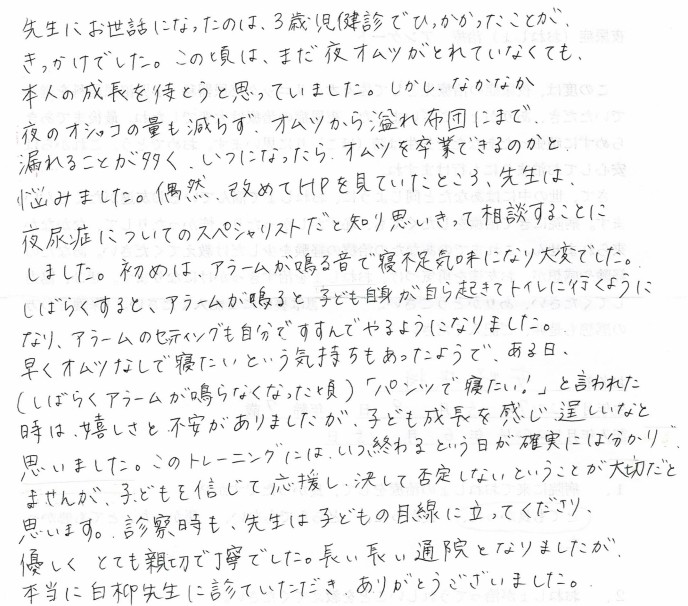 先生にお世話になったのは、3歳児健診でひっかかったことが、
きっかけでした。この頃は、まだ夜オムツがとれていなくても、
本人の成長を待とうと思っていました。しかし、なかなか
夜のオシッコの量も減らず、オムツから溢れ布団にまで
漏れることが多く、いつになったら、オムツを卒業できるのかと
悩みました。偶然、改めてHPを見ていたところ、先生は、
夜尿症についてのスペシャリストだと知り思いきって相談することに
しました。初めは、アラームが鳴る音で寝不足気味になり大変でした。
しばらくすると、アラームが鳴ると、子ども自身が自ら起きてトイレに行くように
なり、アラームのセティングも自分ですすんでやるようになりました。
早くオムツなしで寝たいという気持ちもあったようで、ある日、
(しばらくアラームが鳴らなくなった頃)「パンツで寝たい!」と言われた
時は、嬉しさと不安がありましたが、子ども成長を感じ逞しいなと
思いました。このトレーニングには、いつ終わるという日が確実には分かり
ませんが、子どもを信じて応援し、決して否定しないということが大切だと
思います。診察時も、先生は子どもの目線に立ってくださり、
優しくとても親切で丁寧でした。長い長い通院となりましたが、
本当に白柳先生に診ていただき、ありがとうございました。